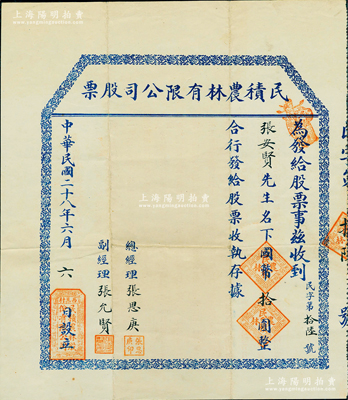 上海陽明拍賣
www.yangmingauction.com
民積農林有限公司股票
為發給股票事茲收到
民字第拾陸號
張安賢先生名下國幣拾圓整
合行發給股票收執存據
總經理張思庚
副經理張允賢
中華民國二十八年六月六日設立
上海陽明拍賣
www.yangmingauction.com